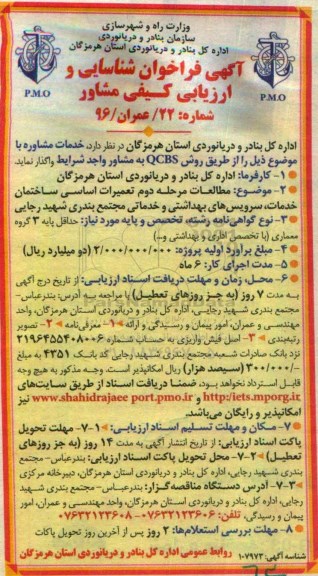 وزارت راه و شهرسازی
سازمان بنادر و دریانوردی
اداره کل بنادر و دریانوردی استان هرمزگان
P.M.O
P.M.O
آگهی فراخوان شناسایی و
ارزیابی کیفی مشاور
شماره: ۲۲/عمران/۹۶
اداره کل بنادر و دریانوردی استان هرمزگان در نظر دارد، خدمات مشاوره با
موضوع ذیل را از طریق روش QCBS به مشاور واجد شرایط واگذار نماید.
۱- کارفرما: اداره کل بنادر و دریانوردی استان هرمزگان
۲- موضوع: مطالعات مرحله دوم تعمیرات اساسی ساختمان
خدمات، سرویس‌های بهداشتی و خدماتی مجتمع بندری شهید رجایی
۳- نوع گواهی‌نامه رشته، تخصص و پایه مورد نیاز: حداقل پایه ۳ گروه
معماری (با تخصص اداری و بهداشتی و...)
۴- مبلغ برآورد اولیه پروژه: ۲/۰۰۰/۰۰۰/۰۰۰ (دو میلیارد ریال)
۵- مدت اجرای کار: ۶ ماه
۶- محل، زمان و مهلت دریافت اسناد ارزیابی: از تاریخ درج آگهی
به مدت ۷ روز (به جز روزهای تعطیل) با مراجعه به آدرس: بندرعباس-
مجتمع بندری شهید رجایی، اداره کل بنادر و دریانوردی استان هرمزگان، واحد
مهندسی و عمران، امور پیمان و رسیدگی و ارائه ۱- معرفی‌نامه ۲- تصویر
رتبه‌بندی ۳- اصل فیش واریزی به حساب شماره ۲۱۹۶۴۵۵۴۰۸۰۰۶
نزد بانک صادرات شعبه مجتمع بندری شهید رجایی کد بانک ۴۳۵۱ به مبلغ
۳۰۰/۰۰۰/- (سیصد هزار) ریال امکانپذیر است. وجه مذکور به هیچ وجه
قابل استرداد نخواهد بود، ضمنا دریافت اسناد از طریق سایت‌های
http:/iets.mporg.ir و www.shahidrajaee port.pmo.ir نیز
امکانپذیر و رایگان می‌باشد.
۷- مکان و مهلت تسلیم اسناد ارزیابی: ۷-۱- مهلت تحویل
پاکت اسناد ارزیابی: از تاریخ انتشار آگهی به مدت ۱۴ روز (به جز روزهای
تعطیل) ۷-۲- محل تحویل پاکت اسناد ارزیابی: بندرعباس- مجتمع
بندری شهید رجایی، اداره کل بنادر و دریانوردی استان هرمزگان، دبیرخانه مرکزی
۷-۳- آدرس دستگاه مناقصه‌گزار: بندرعباس- مجتمع بندری شهید
رجایی، اداره کل بنادر و دریانوردی استان هرمزگان، واحد مهندسی و عمران، امور
پیمان و رسیدگی، تلفن: ۰۷۶۳۲۱۲۳۶۰۶- ۰۷۶۳۲۱۲۳۶۰۸
۸- مهلت بررسی استعلام‌ها: ۲ روز پس از آخرین روز تحویل پاکات
شناسه آگهی: ۱۰۷۹۷۳ روابط عمومی اداره کل بنادر و دریانوردی استان هرمزگان